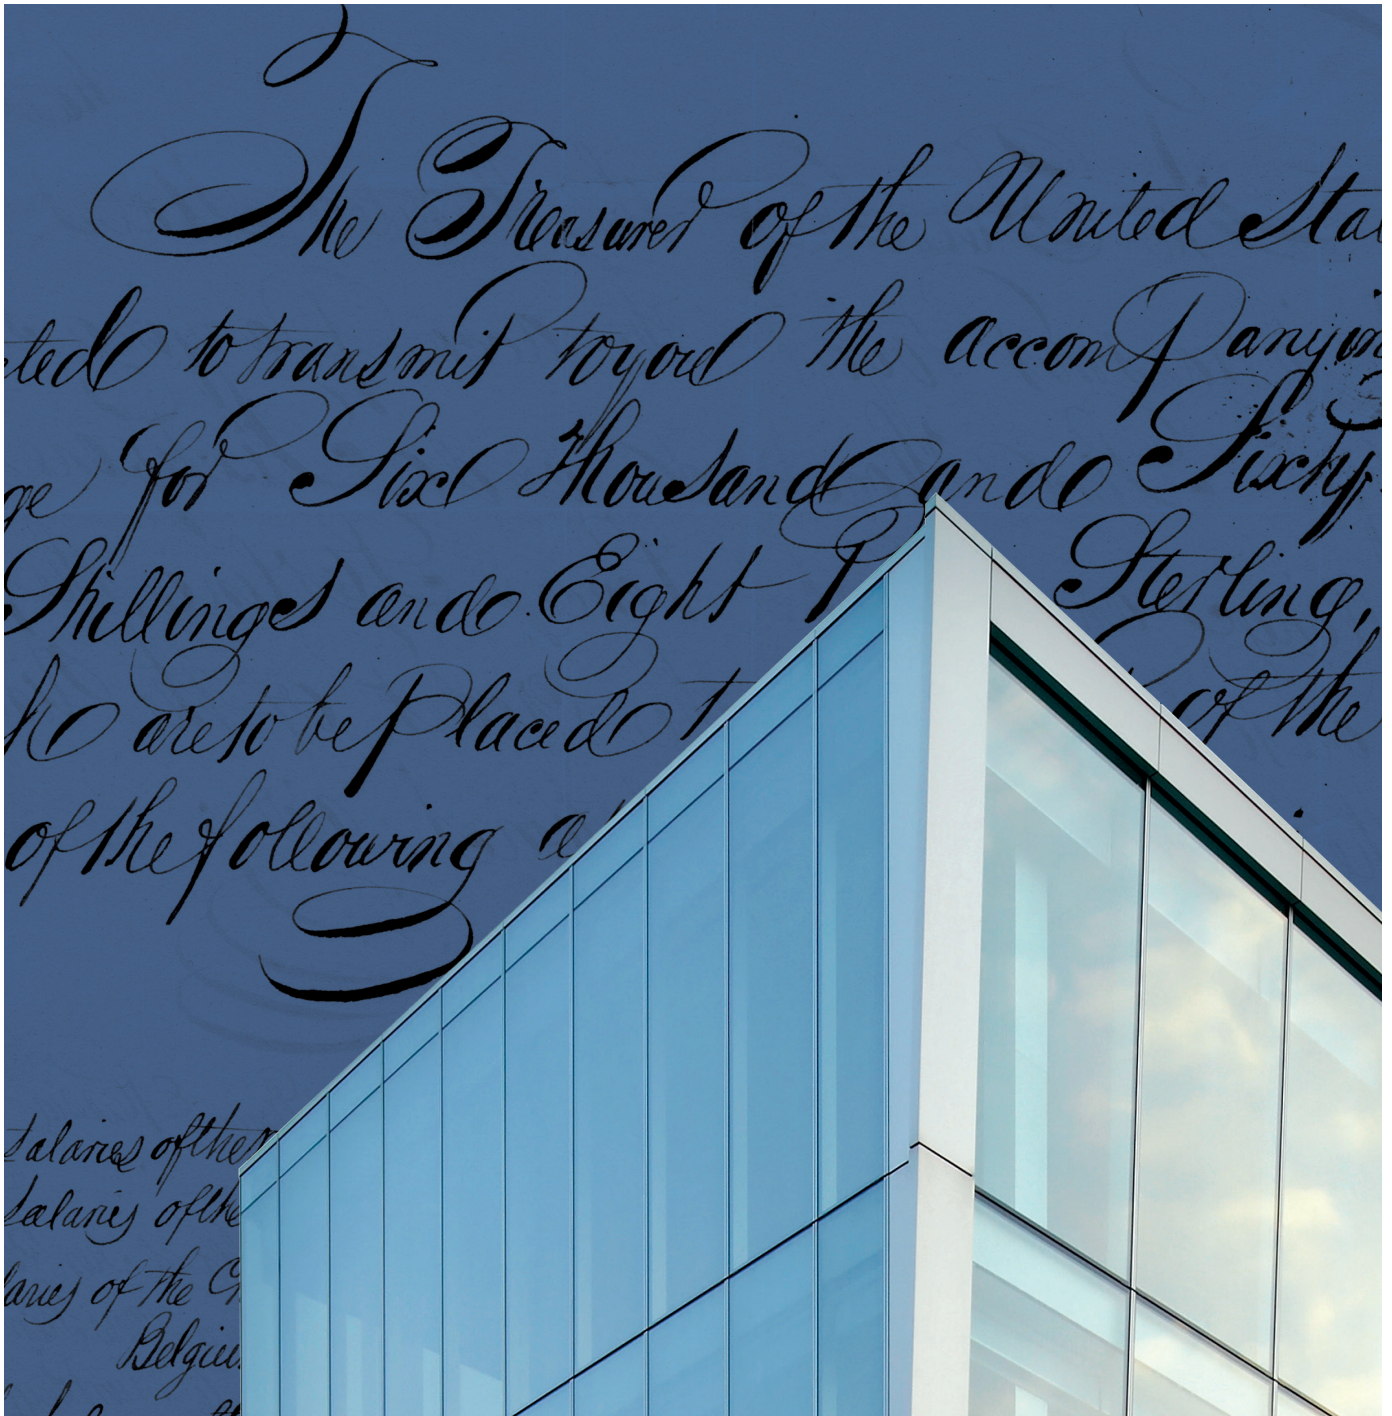 The Treasurer of the United Sta
cted to transmit to you the accompanyin
ge for Six Thousand and Sixty
Shillings and Eight P Sterling,
h are to be placed t of the
of the following a
Salaries of the
Salaries of the
laries of the C
Belgiu